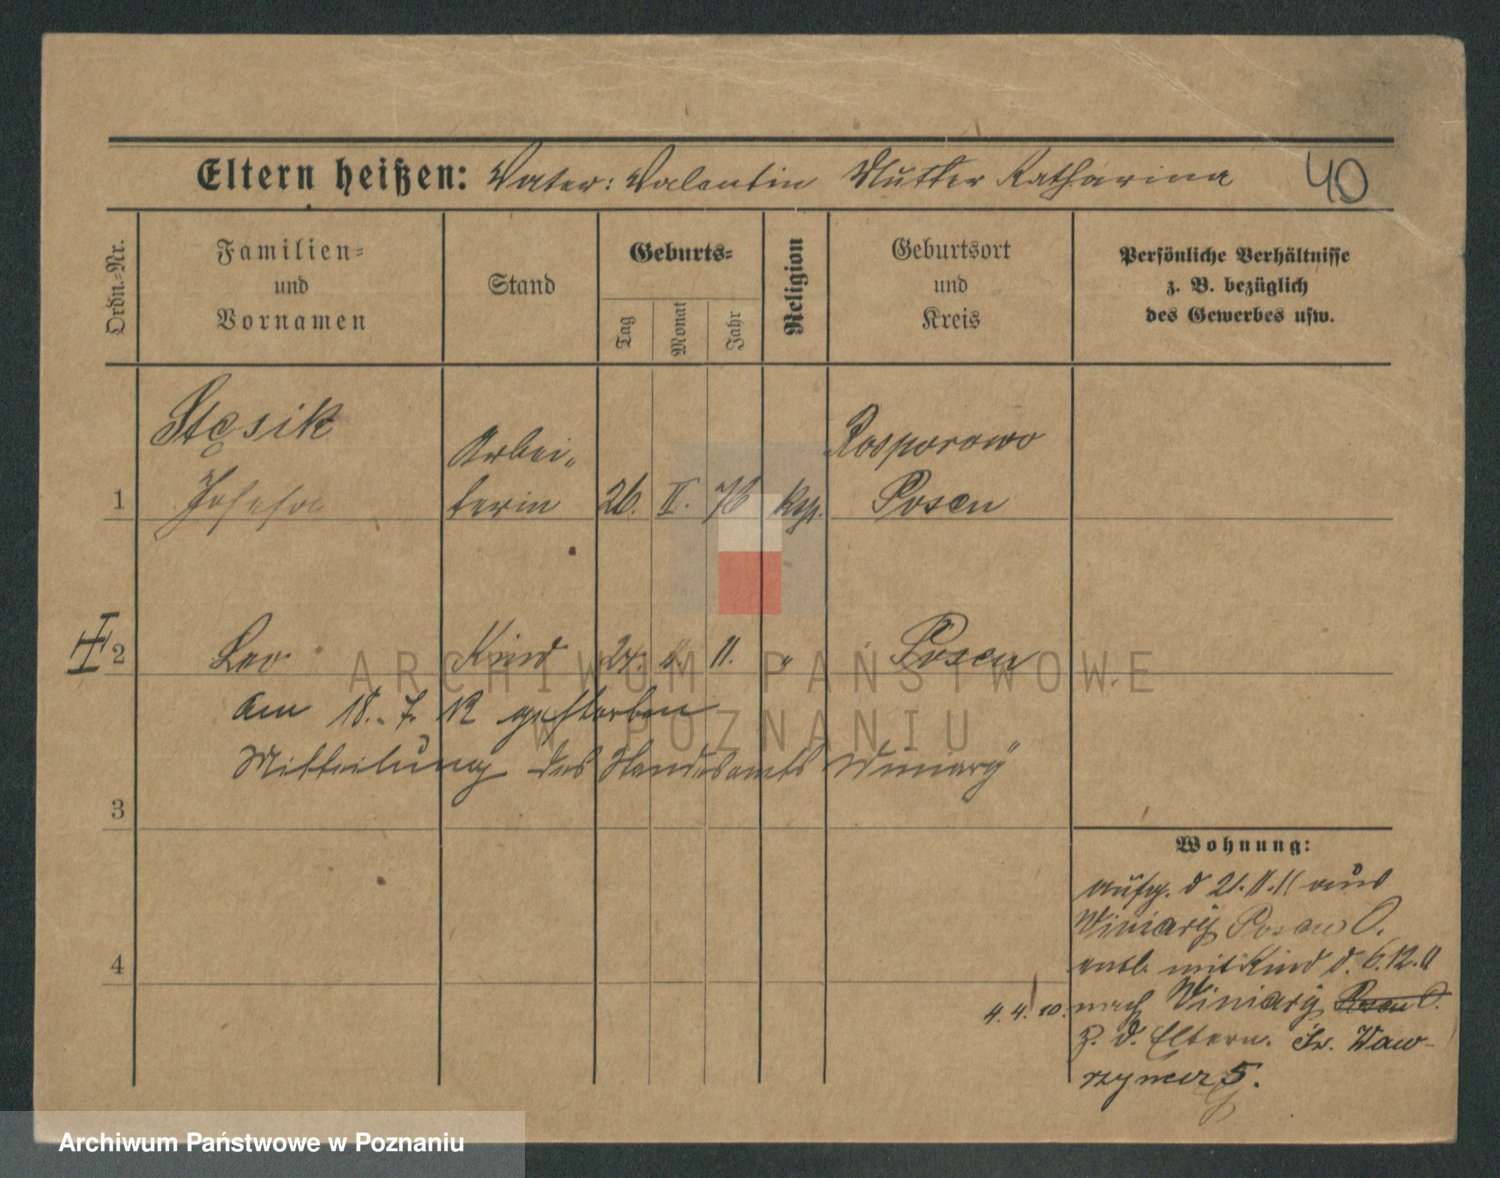 Eltern heißen: Vater: Valentin Mutter Katharina 40
Ordn.-Nr.
Familien- und Vornamen
Stand
Geburts-
Tag
Monat
Jahr
Religion
Geburtsort und Kreis
Persönliche Verhältnisse
z. B. bezüglich
des Gewerbes usw.
Stęsik
Arbei-
Rosporowo
1 Josefa terin 26. II. 76 Posen
2 Leo Kind 24. 11. " Posen
am 18. 7. 12 gestorben
Mitteilung des Standesamts Winiary
3
4
Wohnung:
aufg. d 21.11.11 aus
Winiary Posen O.
entl. mit Kind d. 6.12.11
4.4.10. nach Winiary Posen O.
z. d. Eltern. Waw-
rzyner 5.
ARCHIWUM PAŃSTWOWE
W POZNANIU
Archiwum Państwowe w Poznaniu